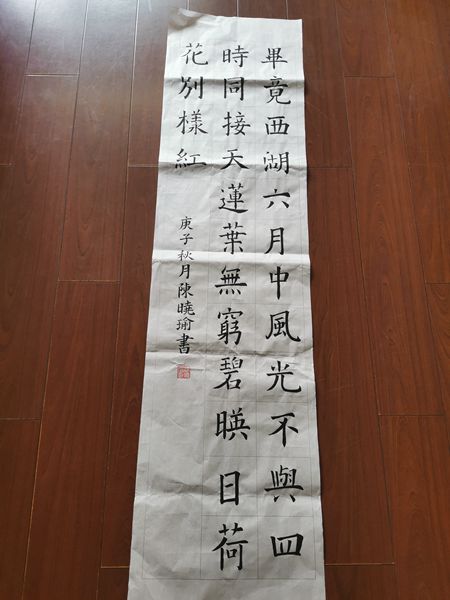 畢竟西湖六月中風光不與四
時同接天蓮葉無窮碧暎日荷
花別樣紅
庚子秋月陳曉瑜書